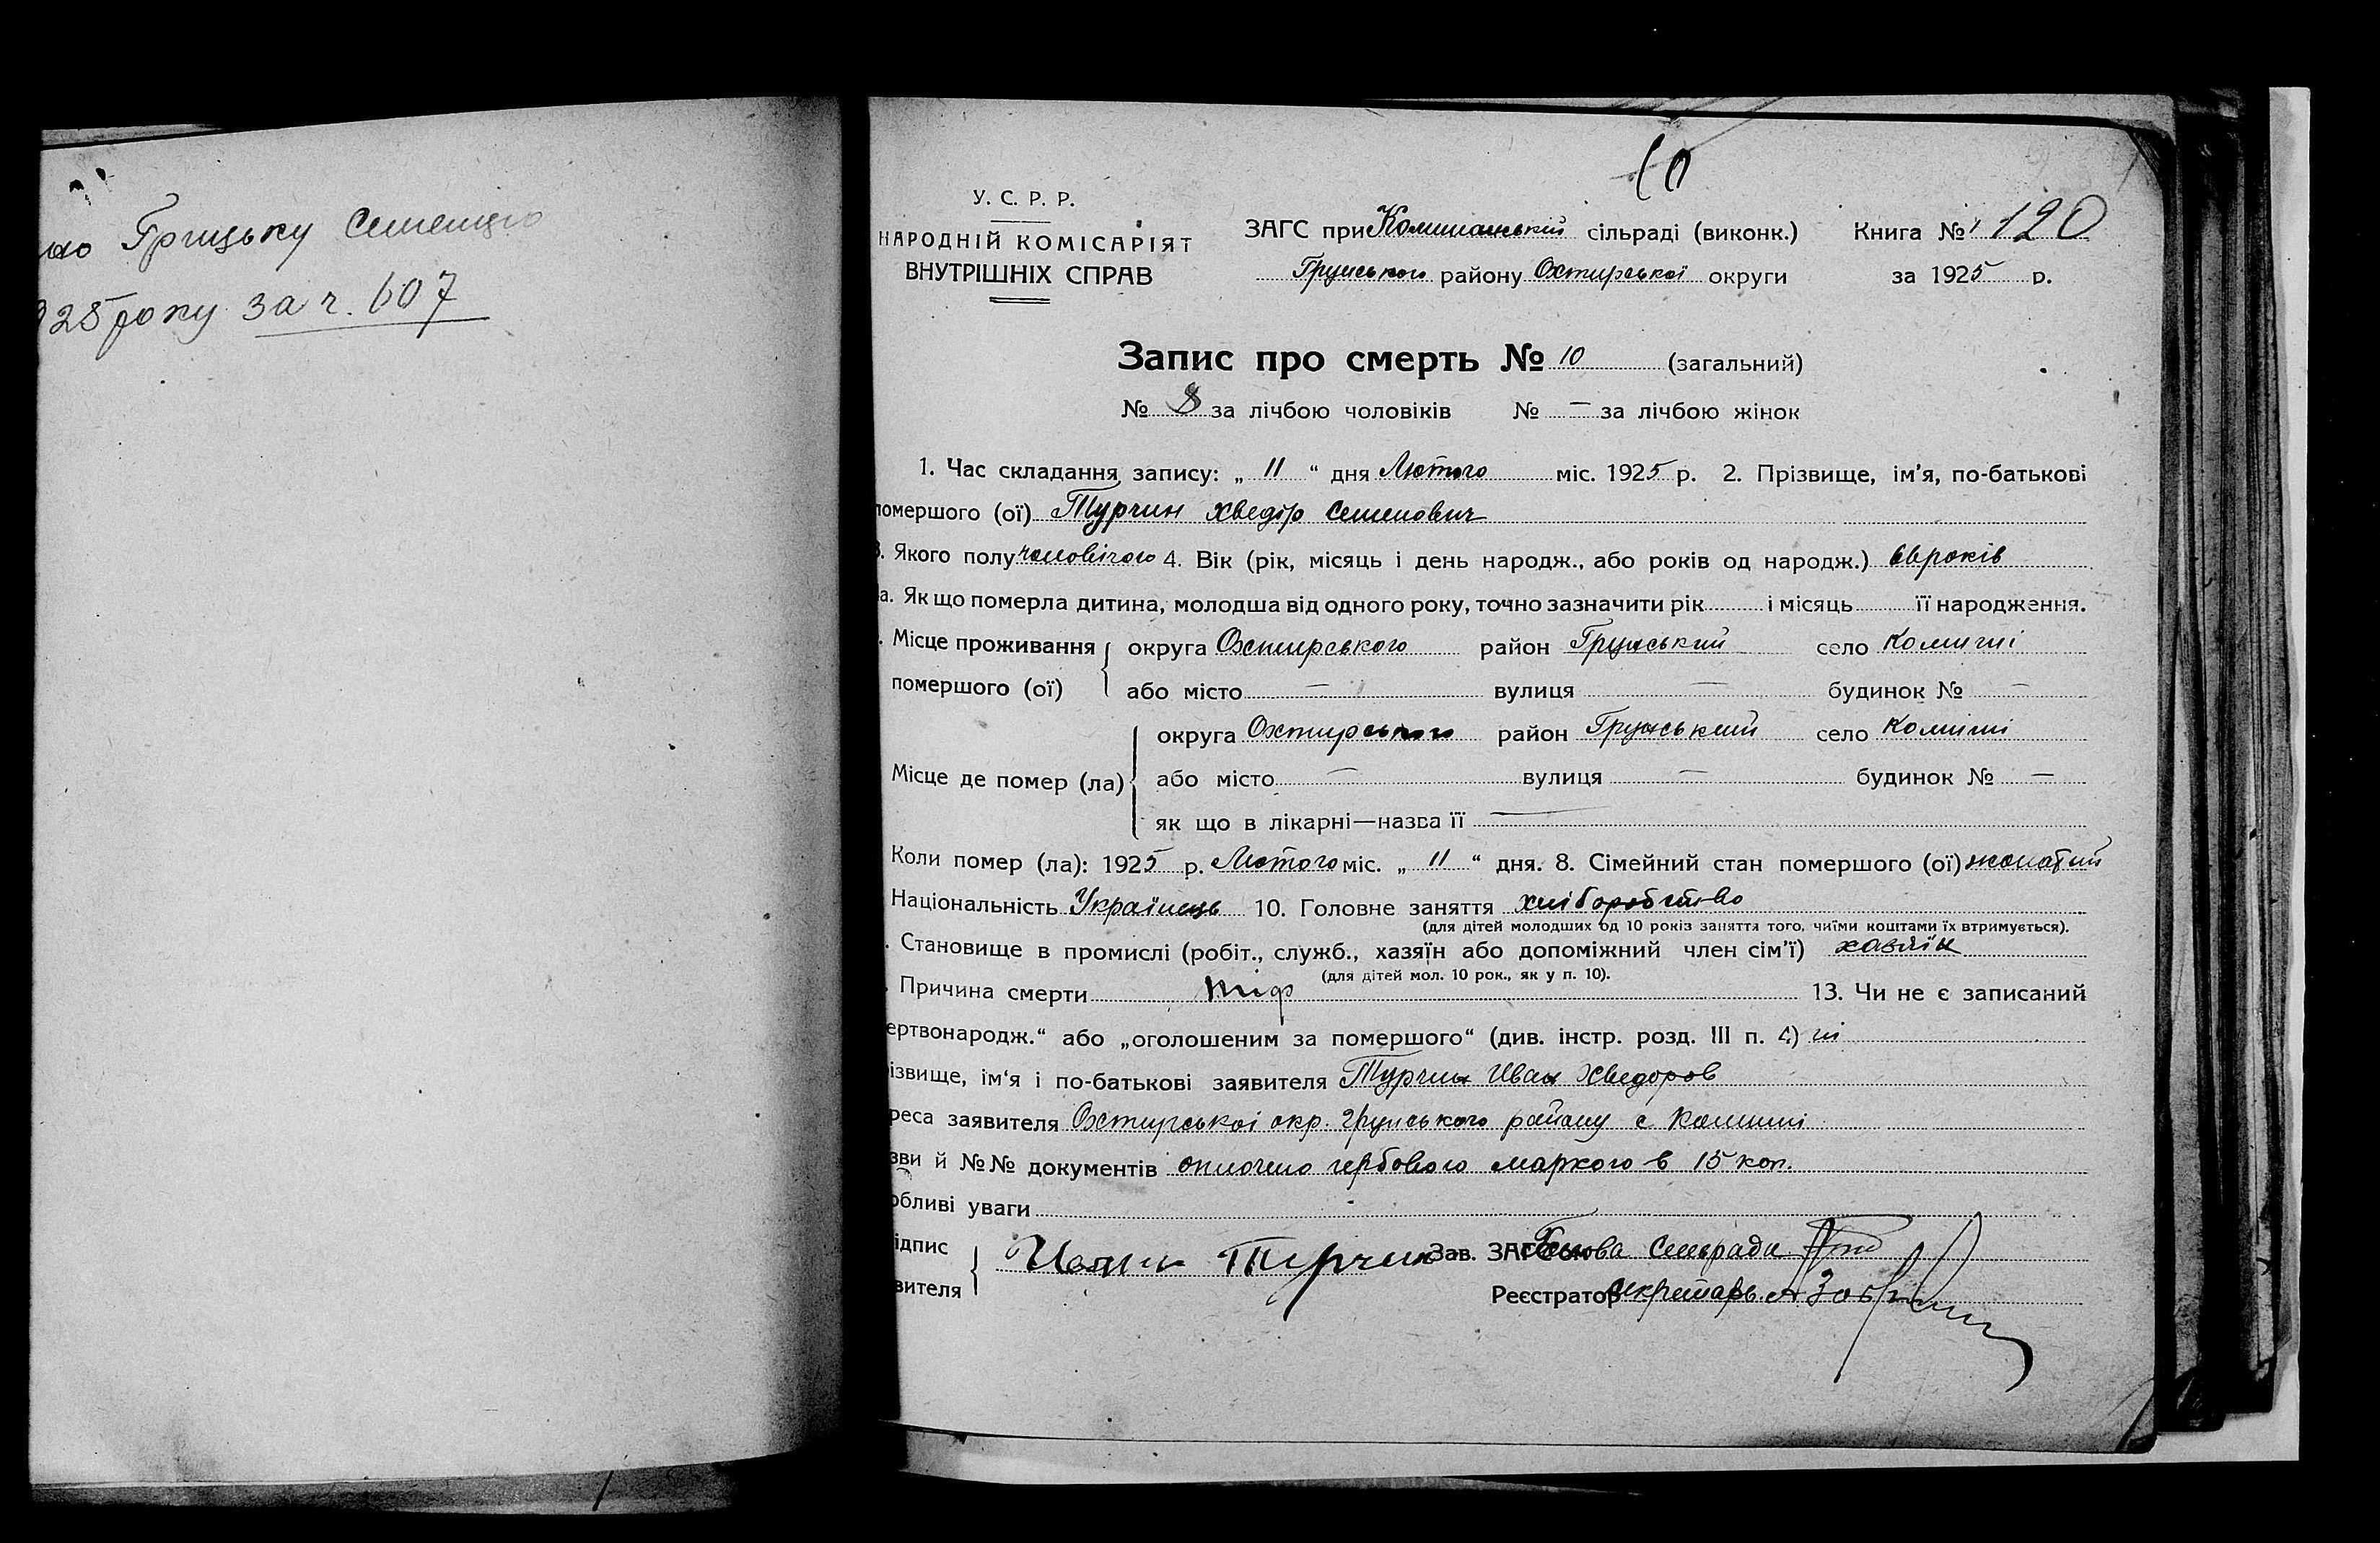 Грицьку Семенцю
925 року за ч. 607
10
У. С. Р. Р.
НАРОДНІЙ КОМІСАРІЯТ
ВНУТРІШНІХ СПРАВ
ЗАГС при Комишанській сільраді (виконк.) Книга № 120
Грунського району Охтирської округи за 1925 р.
Запис про смерть № 10 (загальний)
№ 8 за лічбою чоловіків № — за лічбою жінок
1. Час складання запису: „ 11 “ дня Лютого міс. 1925 р. 2. Прізвище, ім’я, по-батькові
помершого (ої) Турчин Хведір Семенович
3. Якого полу чоловічого 4. Вік (рік, місяць і день народж., або років од народж.) 66 років
а. Як що померла дитина, молодша від одного року, точно зазначити рік і місяць її народження.
. Місце проживання помершого (ої) { округа Охтирського район Грунський село Комиші
або місто — вулиця — будинок № —
Місце де помер (ла) { округа Охтирського район Грунський село Комиші
або місто — вулиця — будинок № —
як що в лікарні—назва її —
Коли помер (ла): 1925 р. Лютого міс. „ 11 “ дня. 8. Сімейний стан помершого (ої) жонатий
Національність Українець 10. Головне заняття хліборобство
(для дітей молодших од 10 років заняття того, чиїми коштами їх втримується).
. Становище в промислі (робіт., служб., хазяїн або допоміжний член сім’ї) хазяїн
(для дітей мол. 10 рок., як у п. 10).
. Причина смерти тіф 13. Чи не є записаний
ертвонародж.“ або „оголошеним за помершого“ (див. інстр. розд. III п. 4) ні
ізвище, ім‘я і по-батькові заявителя Турчин Иван Хведоров
реса заявителя Охтирської окр. Грунського району с Комиші
зви й №№ документів оплочено гербовою маркою в 15 коп.
обливі уваги
ідпис
вителя { Иван Турчин Зав. ЗАГС'ом Голова Сільради
Реєстратор Секретарь